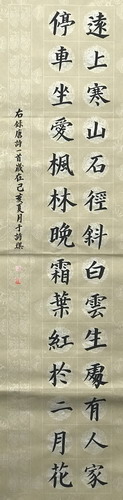 遠上寒山石徑斜白雲生處有人家
停車坐愛楓林晚霜葉紅於二月花
右錄唐詩一首歲在己亥夏月于詩琪